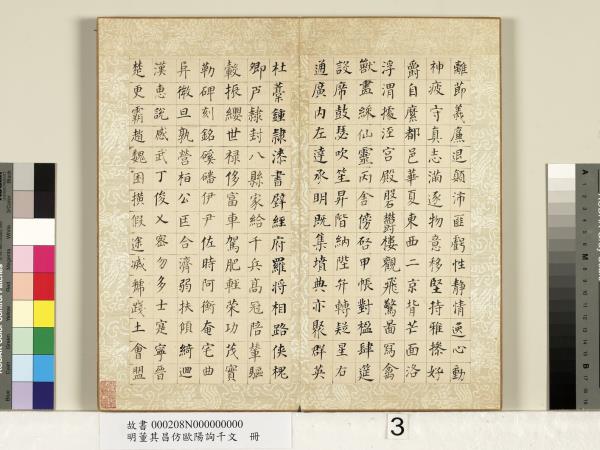 離節義廉退顛沛匪虧性靜情逸心動
神疲守真志滿逐物意移堅持雅操好
爵自縻都邑華夏東西二京背芒面洛
浮渭據涇宮殿磐鬱樓觀飛驚圖寫禽
獸畫綵仙靈丙舍傍啓甲帳對楹肆筵
設席鼓瑟吹笙昇階納陛弁轉疑星右
通廣內左達承明既集墳典亦聚群英
杜藁鍾隸漆書壁經府羅將相路俠槐
卿戶隸封八縣家給千兵高冠陪輦驅
轂振纓世祿侈富車駕肥輕策功茂實
勒碑刻銘磎磻伊尹佐時阿衡奄宅曲
阜微旦孰營桓公匡合濟弱扶傾綺迴
漢惠說感武丁俊乂密勿多士寔寧晉
楚更霸趙魏困橫假途滅虢踐土會盟
故書 000208N000000000
明董其昌仿歐陽詢千文　冊
3